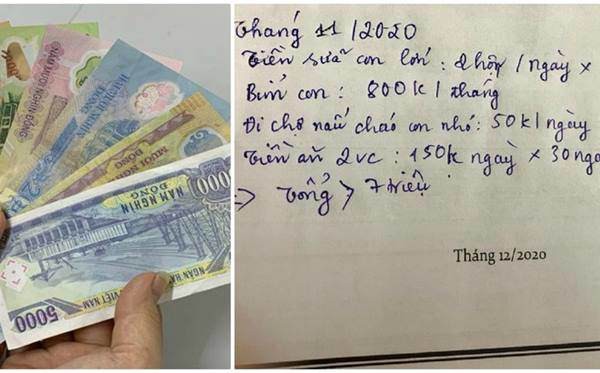 NĂM MƯƠI NGHÌN ĐỒNG
MƯỜI NGHÌN ĐỒNG
000
NĂM NGHÌN
ĐỒNG
NGÂN HÀ
VIỆT NAM
5000
Tháng 11/2020
Tiền sữa con lớn: 2 hộp / ngày ×
Bỉm con: 800k / tháng
Đi chợ nấu cháo con nhỏ: 50k / ngày
Tiền ăn 2vc: 150k ngày × 30 ngà
=> Tổng > 7 triệu
Tháng 12/2020